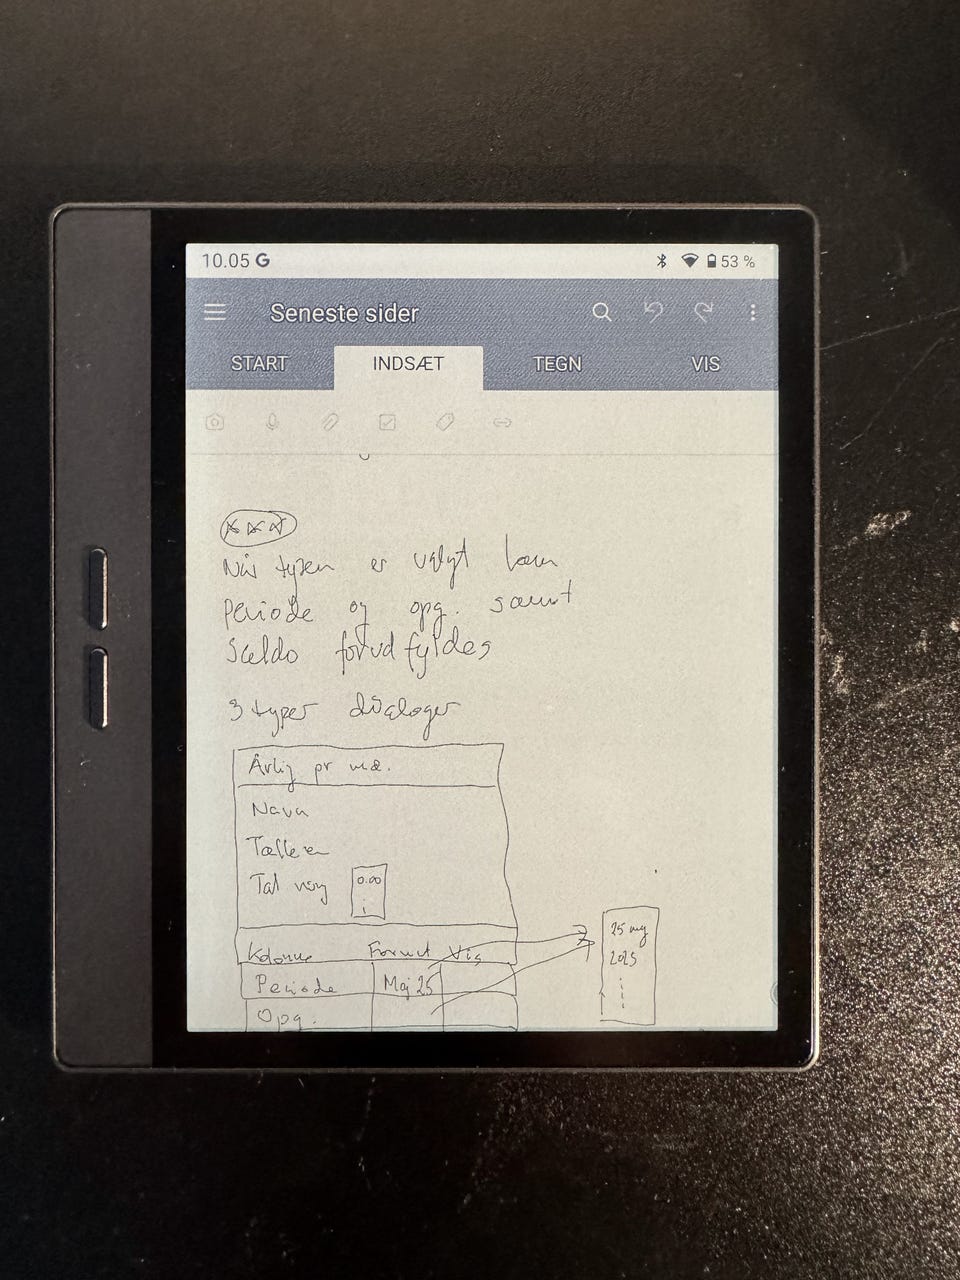 10.05 G 53 %
Seneste sider
START INDSÆT TEGN VIS
Når typen er valgt kan
periode og opg. samt
Saldo forudfyldes
3 typer dialoger
Årlig pr md.
Navn
Tæller
Tal 0.00
Kolonne Format Vis
Periode Maj 25
Opg.
25
2025